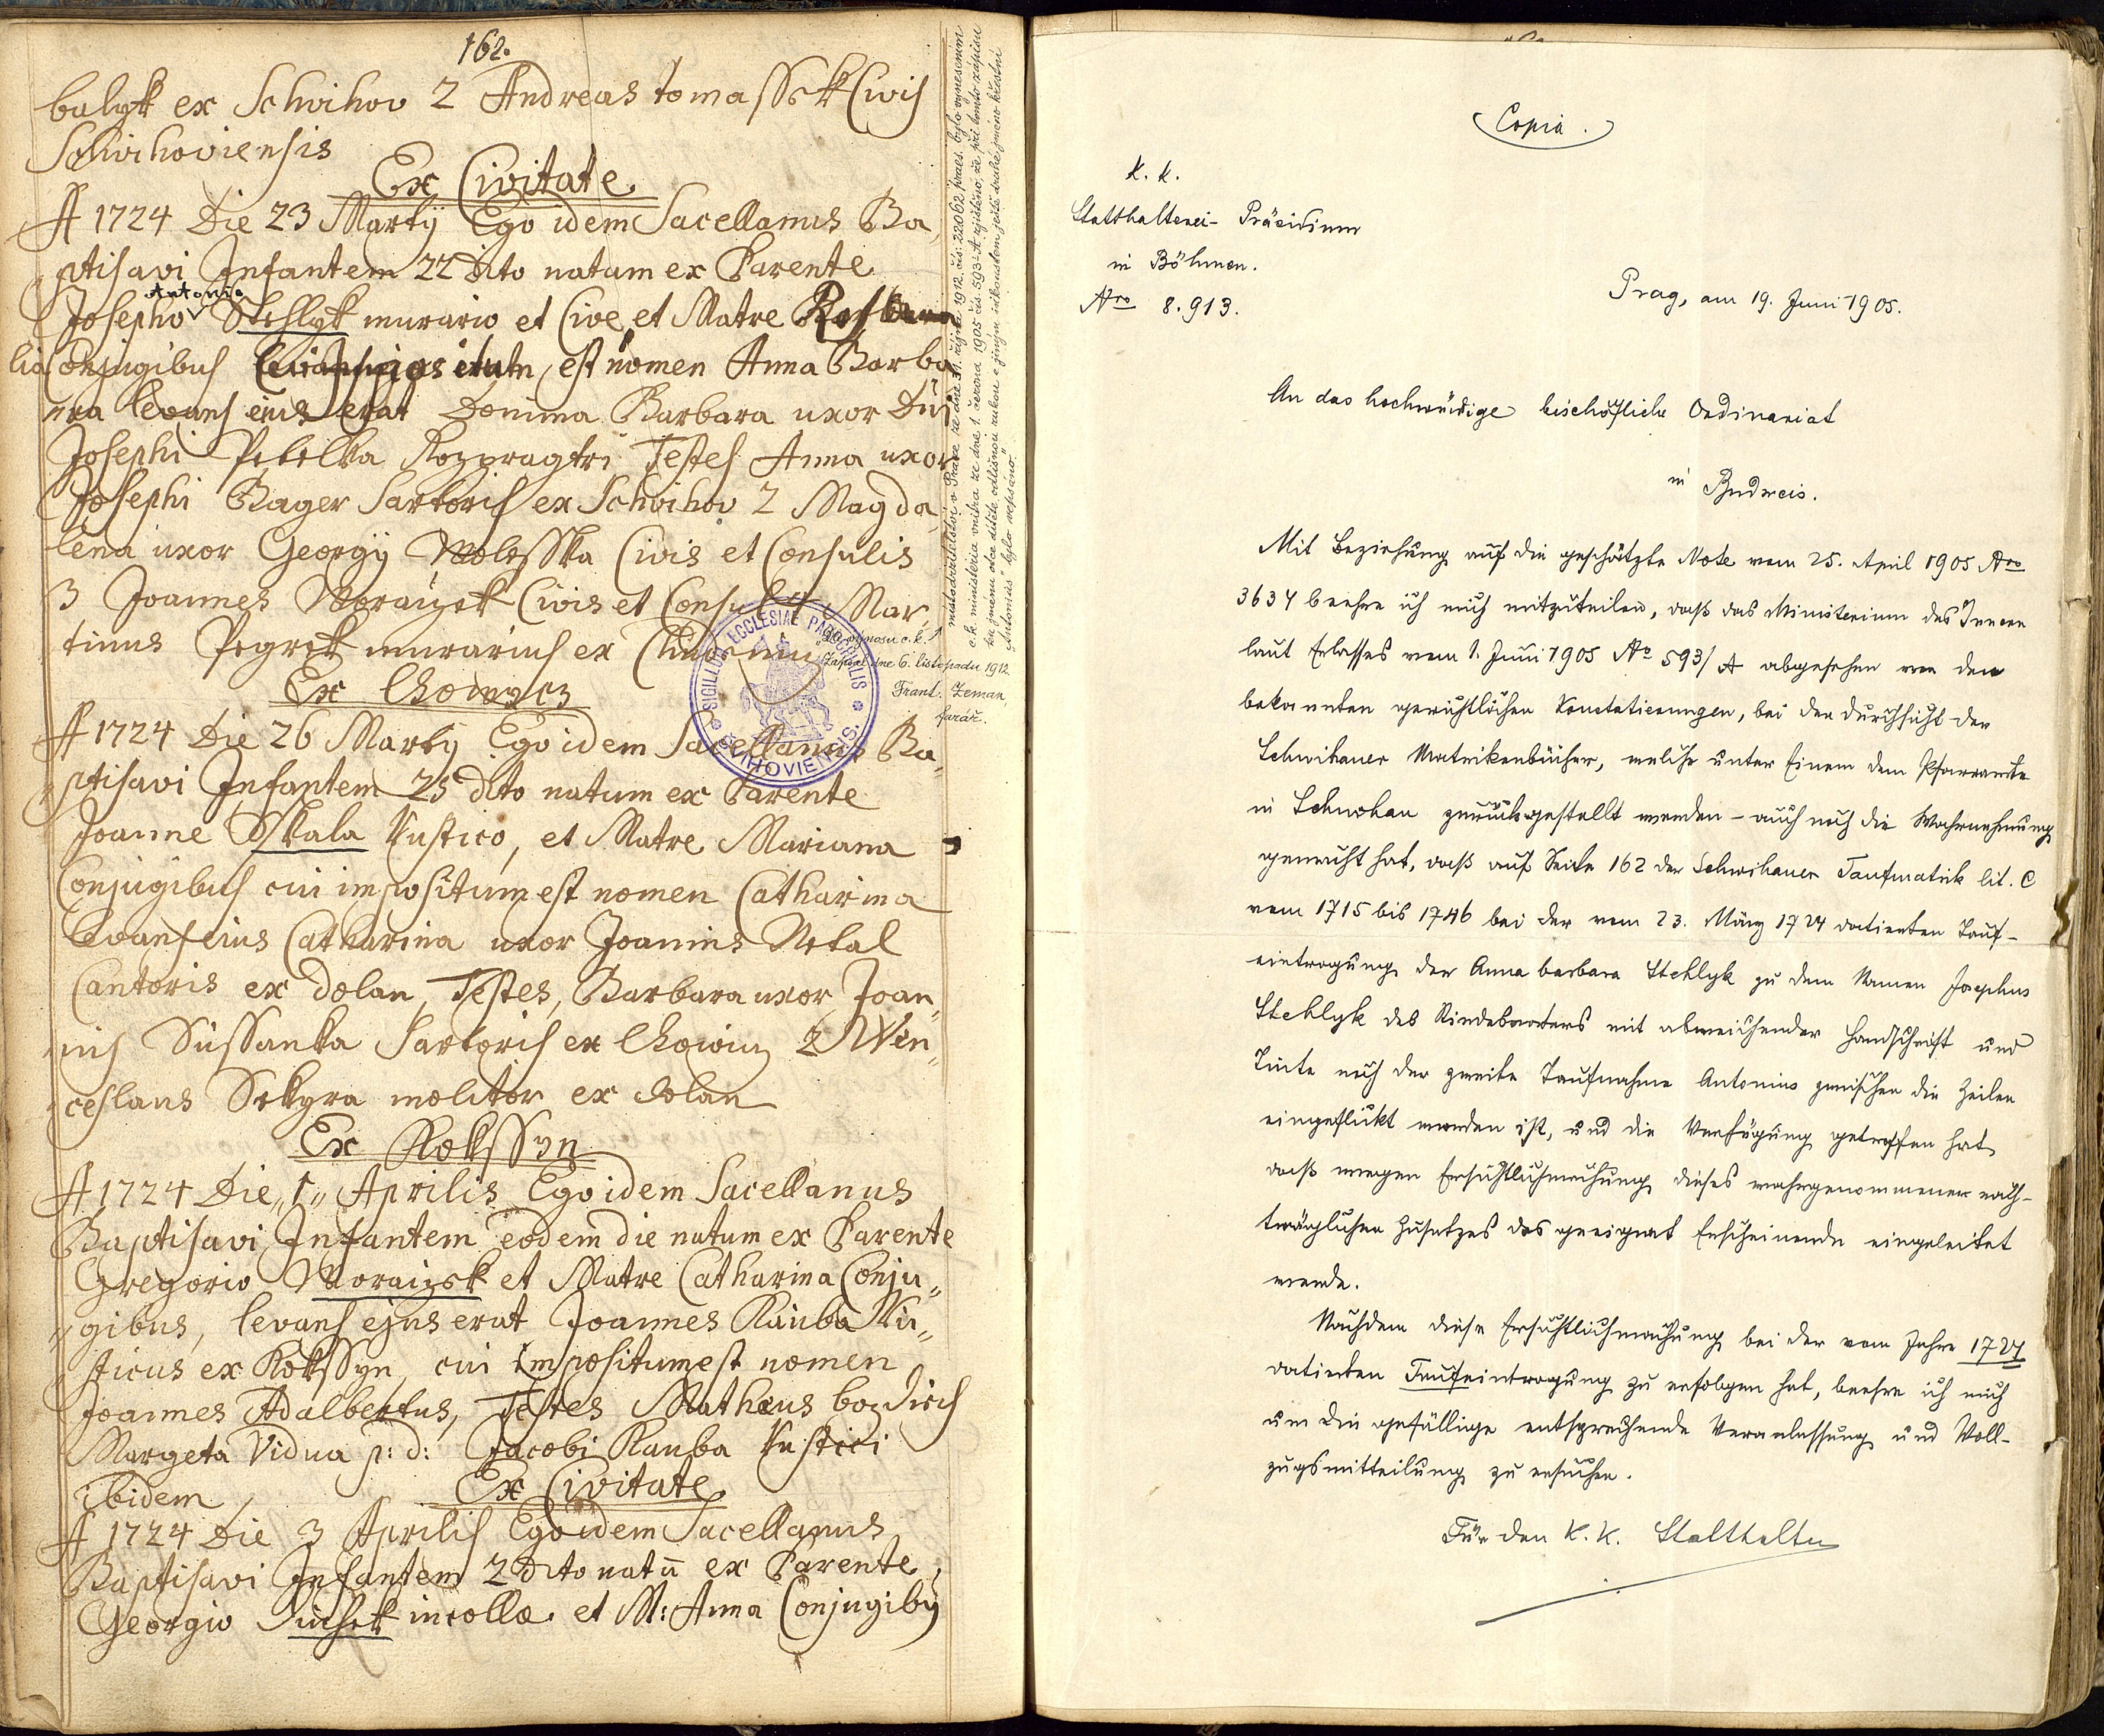 162.
bulyk ex Schvihov 2 Andreas tomassek Civis
Schvihoviensis
Ex Civitate
A 1724 Die 23 Martÿ Ego idem Sacellanus Ba„
„ptisavi Infantem 22 dito natam ex Parente
Antonio
Josepho Stehlyk murario et Cive et Matre Ros
lia Conjugibus est nomen Anna Barba
„ra levans eius erat Domina Barbara uxor
Josephi Testes Anna uxor
Josephi Bager Sartoris ex Schvihov 2 Magda„
lena uxor Georgÿ Wolesska Civis et Consulis
3 Joannes Woraczek Civis et Mar„
tinus murarius ex
Ex
A 1724 Die 26 Martÿ Ego idem Sacellanus Ba„
„ptisavi Infantem 25 dito natum ex Parente
Joanne Skala Rustico, et Matre Mariana
Conjugibus cui impositum est nomen Catharina
levans eius Catharina uxor Joannis
Cantoris ex Dolan, Testes, Barbara uxor Joan„
nis Sussanka Sartoris ex 2 Wen„
„ceslaus Sekyra molitor ex dolan
Ex Kokssyn
A 1724 Die „1„ Aprilis Ego idem Sacellanus
Baptisavi Infantem eodem die natum ex Parente
Gregorio Woraczek et Matre Catharina Conju„
„gibus, levans ejus erat Joannes Kauba Ru„
„sticus ex Kokssyn, cui impositum est nomen
Joannes Adalbertus, Testes Mathæus
Margeta Vidua p: d: Jacobi Kauba Rustici
ibidem
Ex Civitate
A 1724 Die 3 Aprilis Ego idem Sacellanus
Baptisavi Infantem 2 dito natū ex Parente
Georgio incolla et M: Anna Conjugibꝰ
místodržitelství v Praze ze dne 31. října 1912. čís: 22062 praes. bylo vynesením
c.k. ministeria vnitra ze dne 1. června 1905 čís. 593-A zjištěno, že při tomto zápisu
ku jmenu otce dítěte odlišnou rukou a jiným inkoustem ještě druhé jméno křestní
„Antonius“ bylo vepsáno."
výnosu c.k.
Zapsal dne 6. listopadu 1912.
Frant. Zeman,
farář.
SIGILLUM ECCLESIAE PAROCHIALIS
SVIHOVIENSIS.
Copia.
K. K.
Statthalterei- Präsidium
in Böhmen.
Nro 8.913.
Prag, am 19. Juni 1905.
An das hochwürdige bischöfliche Ordinariat
in Budweis.
Mit Beziehung auf die geschätzte Note vom 25. April 1905 Nro
3634 beehre ich mich mitzuteilen, daß das Ministerium des Innern
laut Erlasses vom 1. Juni 1905 No 593/A abgesehen von den
bekannten gerichtlichen Konstatierungen, bei der Durchsicht der
Schwihauer Matrikenbücher, welche unter Einem dem Pfarramte
in Schwihau zurückgestellt werden – auch noch die Wahrnehmung
gemacht hat, daß auf Seite 162 der Schwihauer Taufmatrik lit. C
vom 1715 bis 1746 bei der vom 23. März 1724 datierten Tauf-
eintragung der Anna barbara Stehlyk zu dem Namen Josephus
Stehlyk des Kindesvaters mit abweichender Handschrift und
Tinte noch der zweite Taufname Antonius zwischen die Zeilen
eingeflickt worden ist, und die Verfügung getroffen hat
daß wegen Ersichtlichmachung dieses wahrgenommenen nach-
träglichen Zusatzes das geeignet Erscheinende eingeleitet
werde.
Nachdem diese Ersichtlichmachung bei der vom Jahre 1724
datierten Taufeintragung zu erfolgen hat, beehre ich mich
um die gefällige entsprechende Veranlassung und Voll-
zugsmitteilung zu ersuchen.
Für den K. K. Statthalter